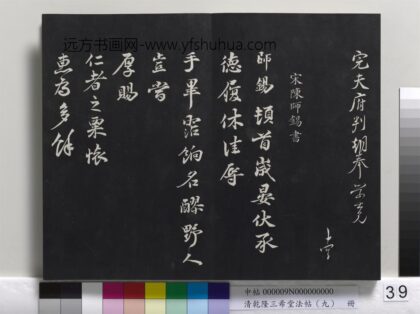 远方书画网-www.yfshuhua.com
完夫府判朝奉
上
宋陳師錫書
師錫頓首歲晏伏承
德履休佳辱
手畢寵餉名醪野人
豈嘗
厚賜
仁者之粟悵
惠為多餘
申帖 000009N000000000
清乾隆三希堂法帖(九) 冊
39